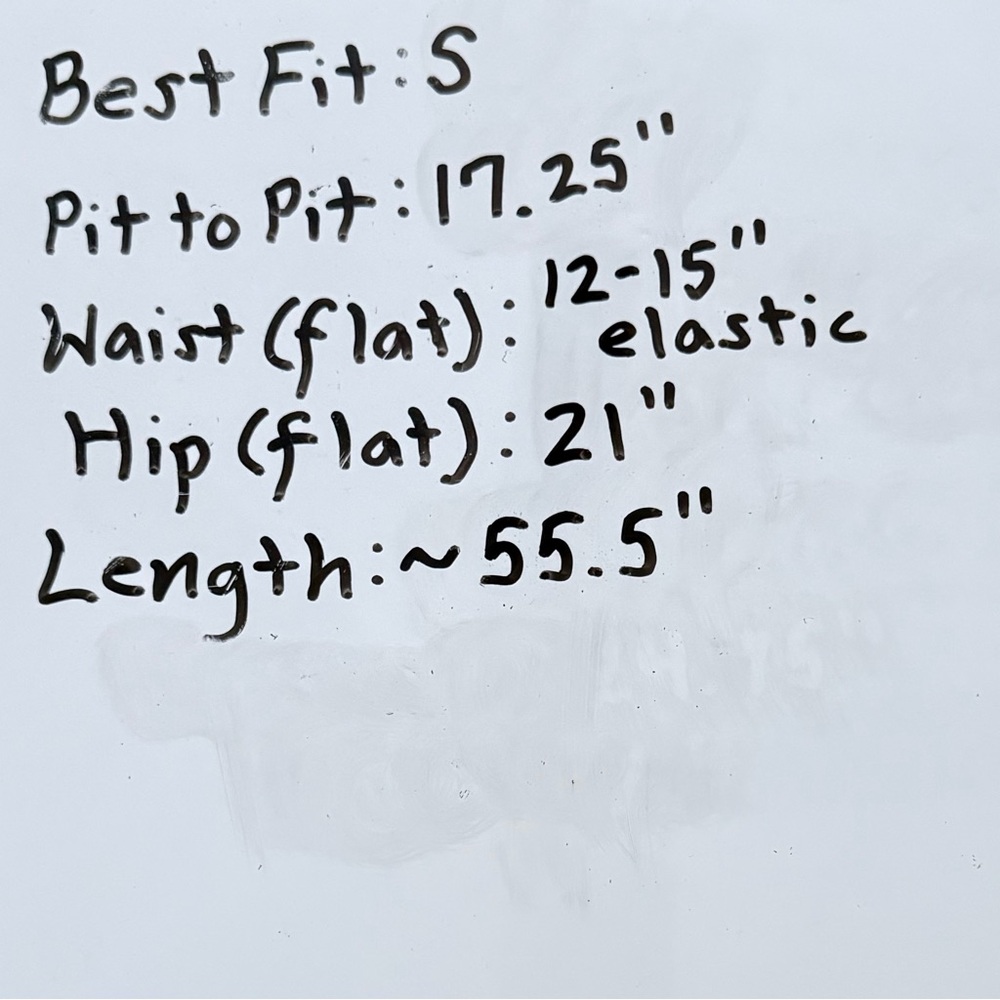 Best Fit: S
Pit to Pit: 17.25"
Waist (flat): 12-15"
elastic
Hip (flat): 21"
Length: ~55.5"